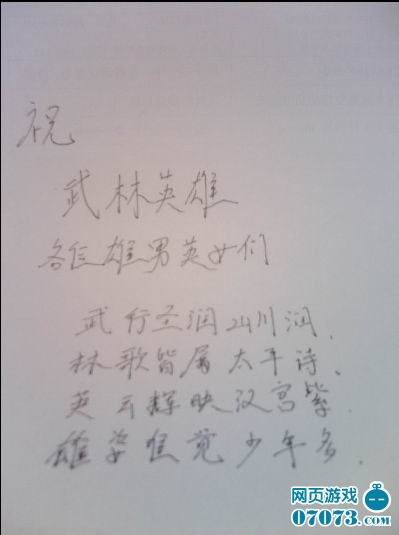 祝
武林英雄
各位雄男英女们
武行圣润山川润.
林歌皆属太平诗、
英云辉映汉宫紫.
雄姿惟觉少年多.
网页游戏
07073.com